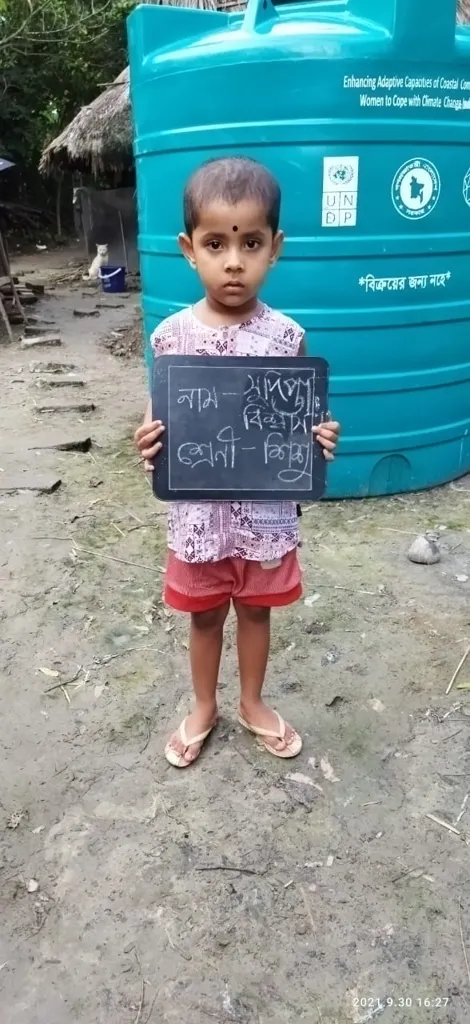 Enhancing Adaptive Capacities of Coastal Com
Women to Cope with Climate Change
U N
D P
গণপ্রজাতন্ত্রী বাংলাদেশ
সরকার
*বিক্রয়ের জন্য নহে*
নাম - সুদিপ্তা
বিশ্বাস
শ্রেনী - শিশু
2021.9.30 16:27